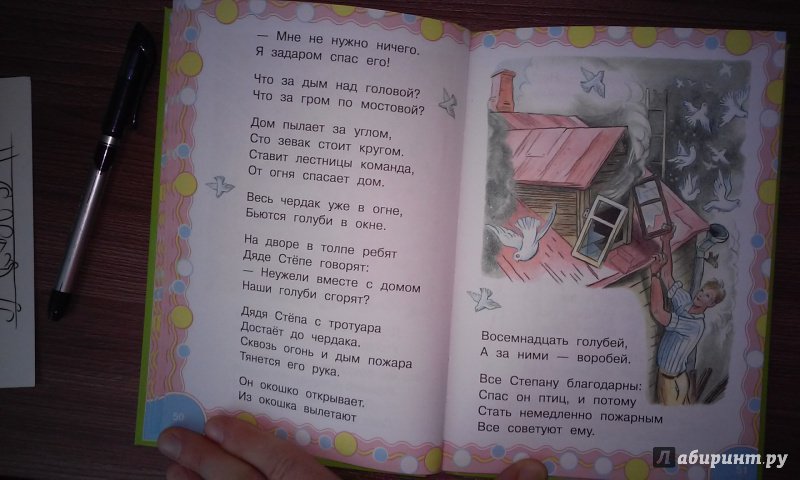 — Мне не нужно ничего.
Я задаром спас его!
Что за дым над головой?
Что за гром по мостовой?
Дом пылает за углом,
Сто зевак стоит кругом.
Ставит лестницы команда,
От огня спасает дом.
Весь чердак уже в огне,
Бьются голуби в окне.
На дворе в толпе ребят
Дяде Стёпе говорят:
— Неужели вместе с домом
Наши голуби сгорят?
Дядя Стёпа с тротуара
Достаёт до чердака.
Сквозь огонь и дым пожара
Тянется его рука.
Он окошко открывает.
Из окошка вылетают
50
Восемнадцать голубей,
А за ними — воробей.
Все Степану благодарны:
Спас он птиц, и потому
Стать немедленно пожарным
Все советуют ему.
Лабиринт.ру